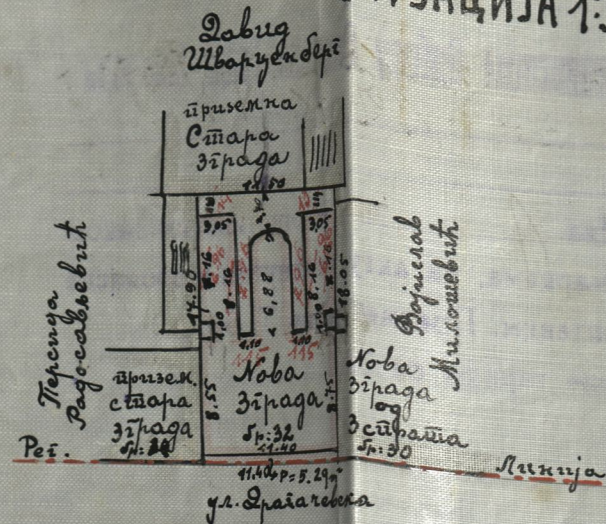 ЦИЈА 1:
Давид
Шварценберг
приземна
Стара
Зграда
11.50
3,05
3,05
8.16
8.16
8.16
6,88
17.90
18.05
1,00
1,00
1,10
1,10
115
115
Персида
Радосављевић
Војислав
Милошевић
призем.
стара
Зграда
бр:
8.55
Нова
Зграда
бр:32
11.40
Нова
Зграда
од
3 спрата
бр:30
Рег.
Линија
11.40 P=5.29м²
ул. Драгачевска